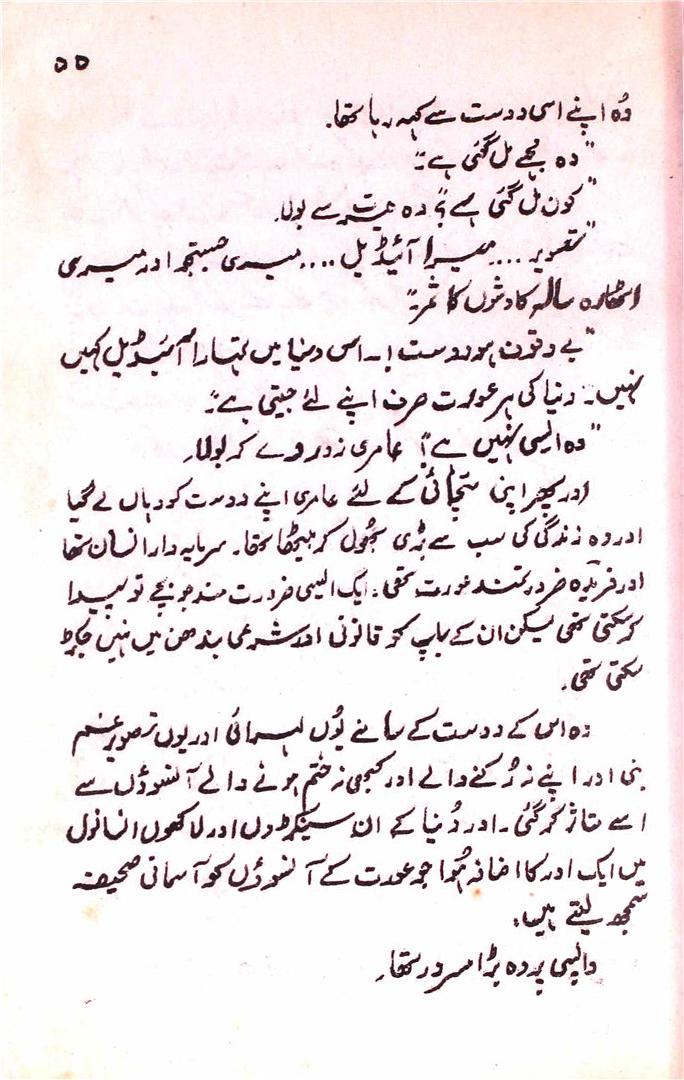 ۵۵
وُہ اپنے اسی دوست سے کہہ رہا تھا۔
"وہ مجھے مل گئی ہے۔"
"کون مل گئی ہے؟" وہ حیرت سے بولا۔
"تصویر .... میرا آئیڈیل .... میری جستجو اور میری
اٹھارہ سالہ کاوشوں کا ثمر۔"
"بے وقوف ہو دوست! ۔ اس دنیا میں تمہارا آئیڈیل کہیں
نہیں۔ دنیا کی ہر عورت صرف اپنے لئے جیتی ہے۔"
"وہ ایسی نہیں ہے"! عامری زور دے کر بولا۔
اور پھر اپنی سچّائی کے لئے عامری اپنے دوست کو وہاں لے گیا
اور وہ زندگی کی سب سے بڑی بھُول کر بیٹھا تھا۔ سرمایہ دار انسان تھا
اور فریدہ ضرورتمند عورت تھی۔ ایک ایسی ضرورت مند جو بچے تو پیدا
کر سکتی تھی لیکن ان کے باپ کو قانونی اور شرعی بندھن میں نہیں جکڑ
سکتی تھی۔
وہ اس کے دوست کے سامنے یُوں لہرائی اور یوں تصویرِ غم
بنی اور اپنے نہ رُکنے والے اور کبھی نہ ختم ہونے والے آنسوؤں سے
اسے متاثر کر گئی ۔ اور دُنیا کے ان سینکڑوں اور لاکھوں انسانوں
میں ایک اور کا اضافہ ہُوا جو عورت کے آنسوؤں کو آسمانی صحیفہ
سمجھ لیتے ہیں۔
واپسی پر وہ بڑا مسرور تھا۔